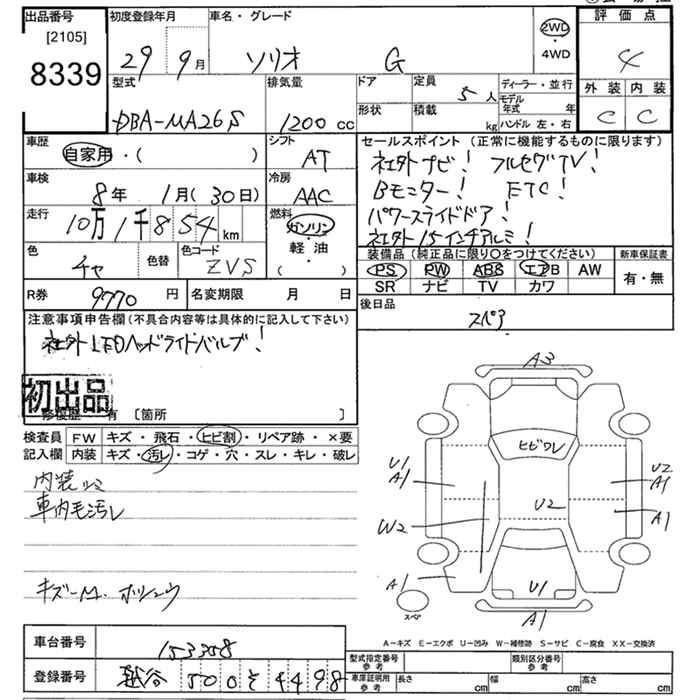 出品番号 初度登録年月 車名・グレード 評価点
[2105]
8339
29 9月 ソリオ G 2WD・4WD 4
型式 排気量 ドア 定員 5人 ディーラー・並行 外装 内装
DBA-MA26S 1200cc 形状 積載 kg モデル年式 年 ハンドル 左・右 C C
車歴 シフト セールスポイント (正常に機能するものに限ります)
自家用・( ) AT 社外ナビ! フルセグTV!
車検 冷房 Bモニター! ETC!
8年 1月(30日) AAC パワースライドドア!
走行 燃料 社外15インチアルミ!
10万1千854km ガソリン・軽油( )
色 色替 色コード 装備品(純正品に限り○をつけてください) 新車保証書
チャ ZVS PS PW ABS エアB AW 有・無
SR ナビ TV カワ
R券 9770円 名変期限 月 日 後日品
スペア
注意事項申告欄(不具合内容等は具体的に記入して下さい)
社外LEDヘッドライトバルブ!
初出品
修復歴 有 〔箇所 〕
検査員 FW キズ・飛石・ヒビ割・リペア跡・×要
記入欄 内装 キズ・汚レ・コゲ・穴・スレ・キレ・破レ
内装
車内毛汚レ
キズー
A3
ヒビワレ
U1 A1
U2 A1
A1
W2
U2
A1
U1
スペア
A1
A-キズ E-エクボ U-凹み W-補修跡 S-サビ C-腐食 XX-交換済
車台番号 153358
型式指定番号 参考 類別区分番号 参考
登録番号 越谷 500 そ 4498
車庫証明用 参考 長さ cm 幅 cm 高さ cm